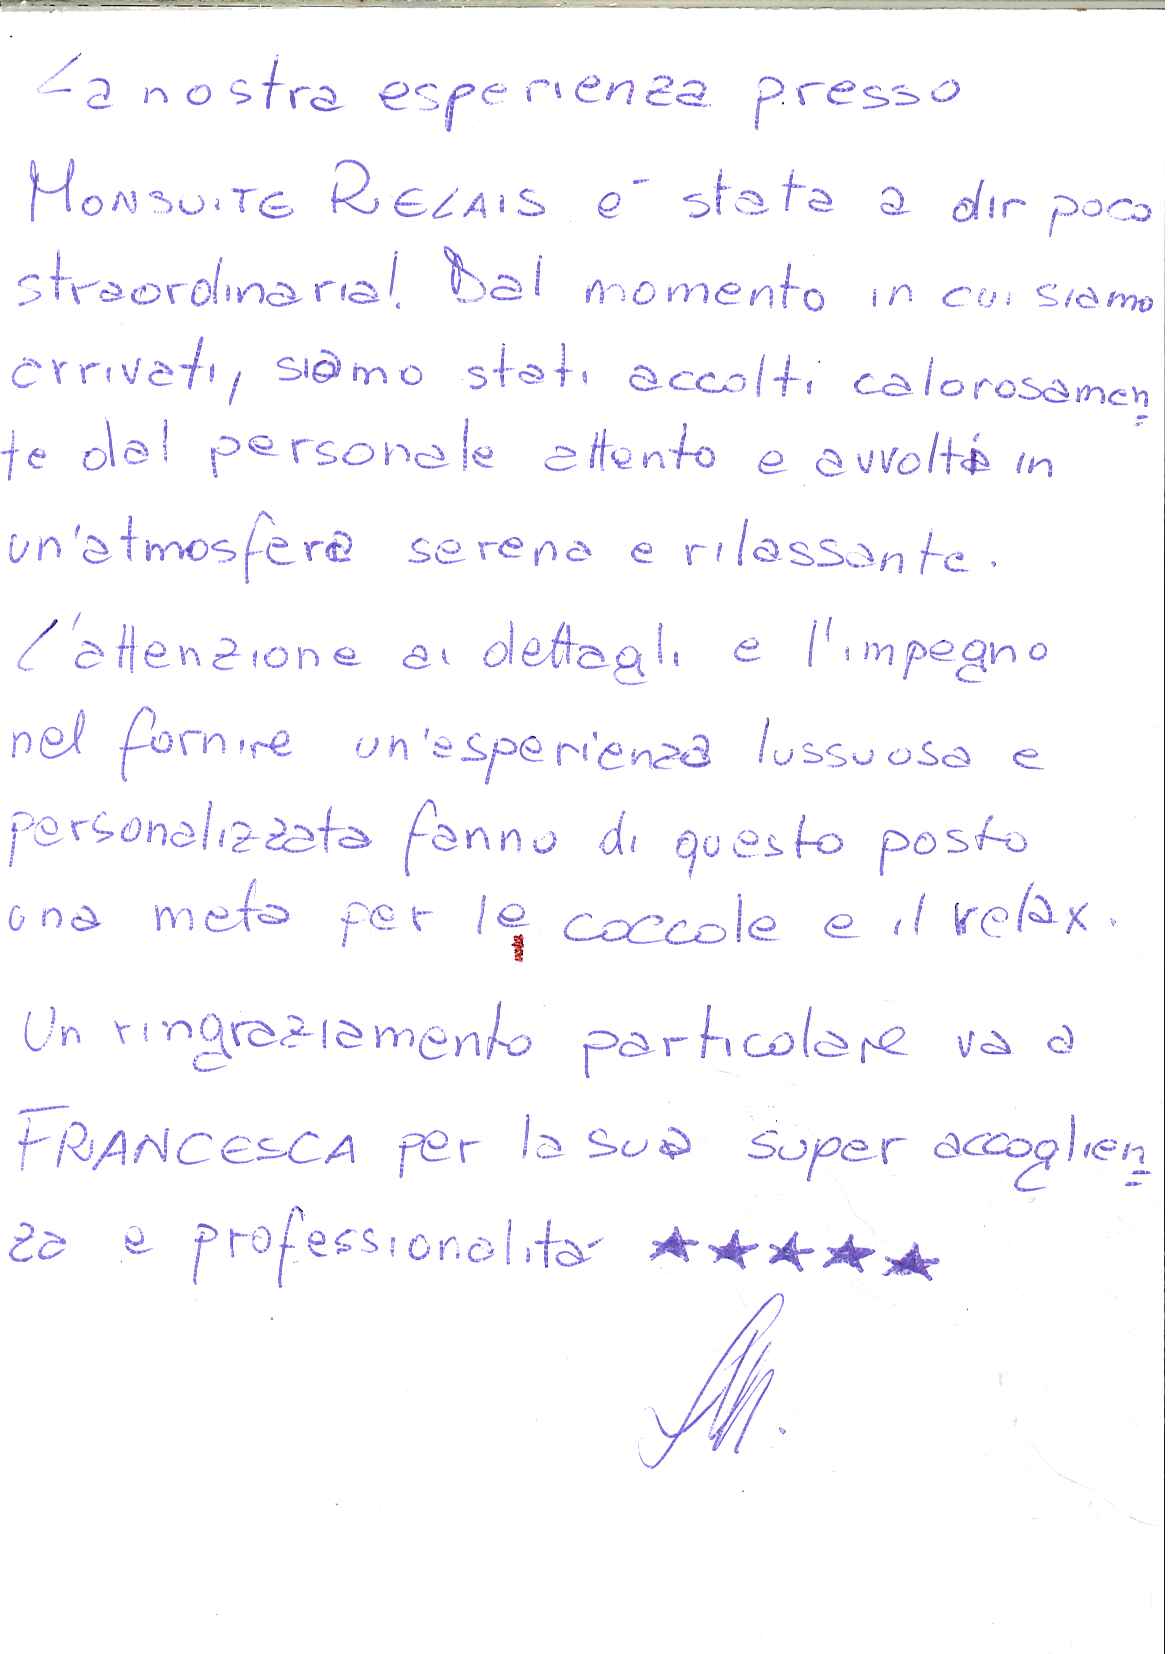 La nostra esperienza presso
MONSUITE RELAIS è stata a dir poco
straordinaria! Dal momento in cui siamo
arrivati, siamo stati accolti calorosamen=
te dal personale attento e avvolti in
un'atmosfera serena e rilassante.
L'attenzione ai dettagli e l'impegno
nel fornire un'esperienza lussuosa e
personalizzata fanno di questo posto
una meta per le coccole e il relax.
Un ringraziamento particolare va a
FRANCESCA per la sua super accoglien=
za e professionalità ★★★★★